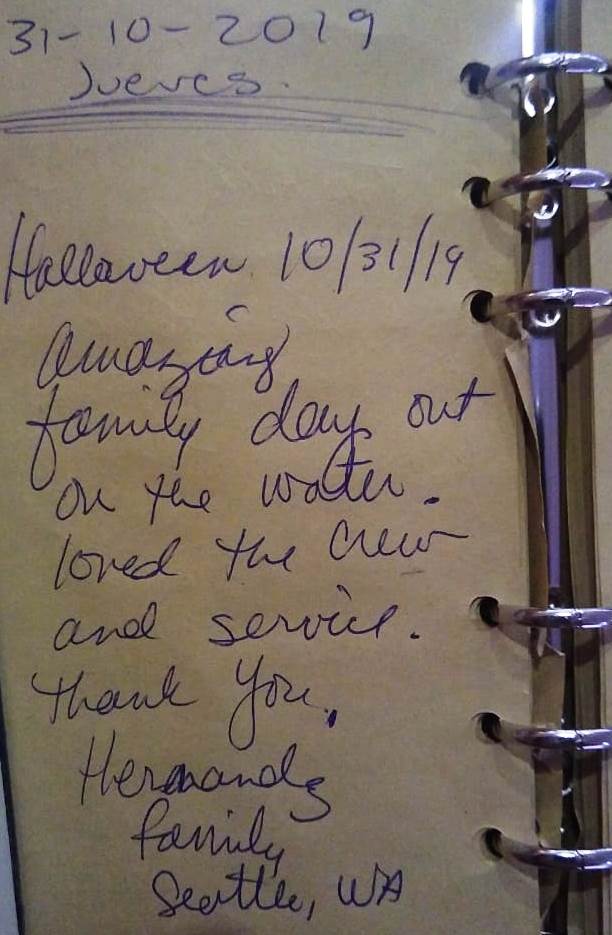 31-10-2019
Jueves.
Halloween 10/31/19
amazing
family day out
on the water.
loved the crew
and service.
Thank You,
Hernandz
family
Seattle, WA